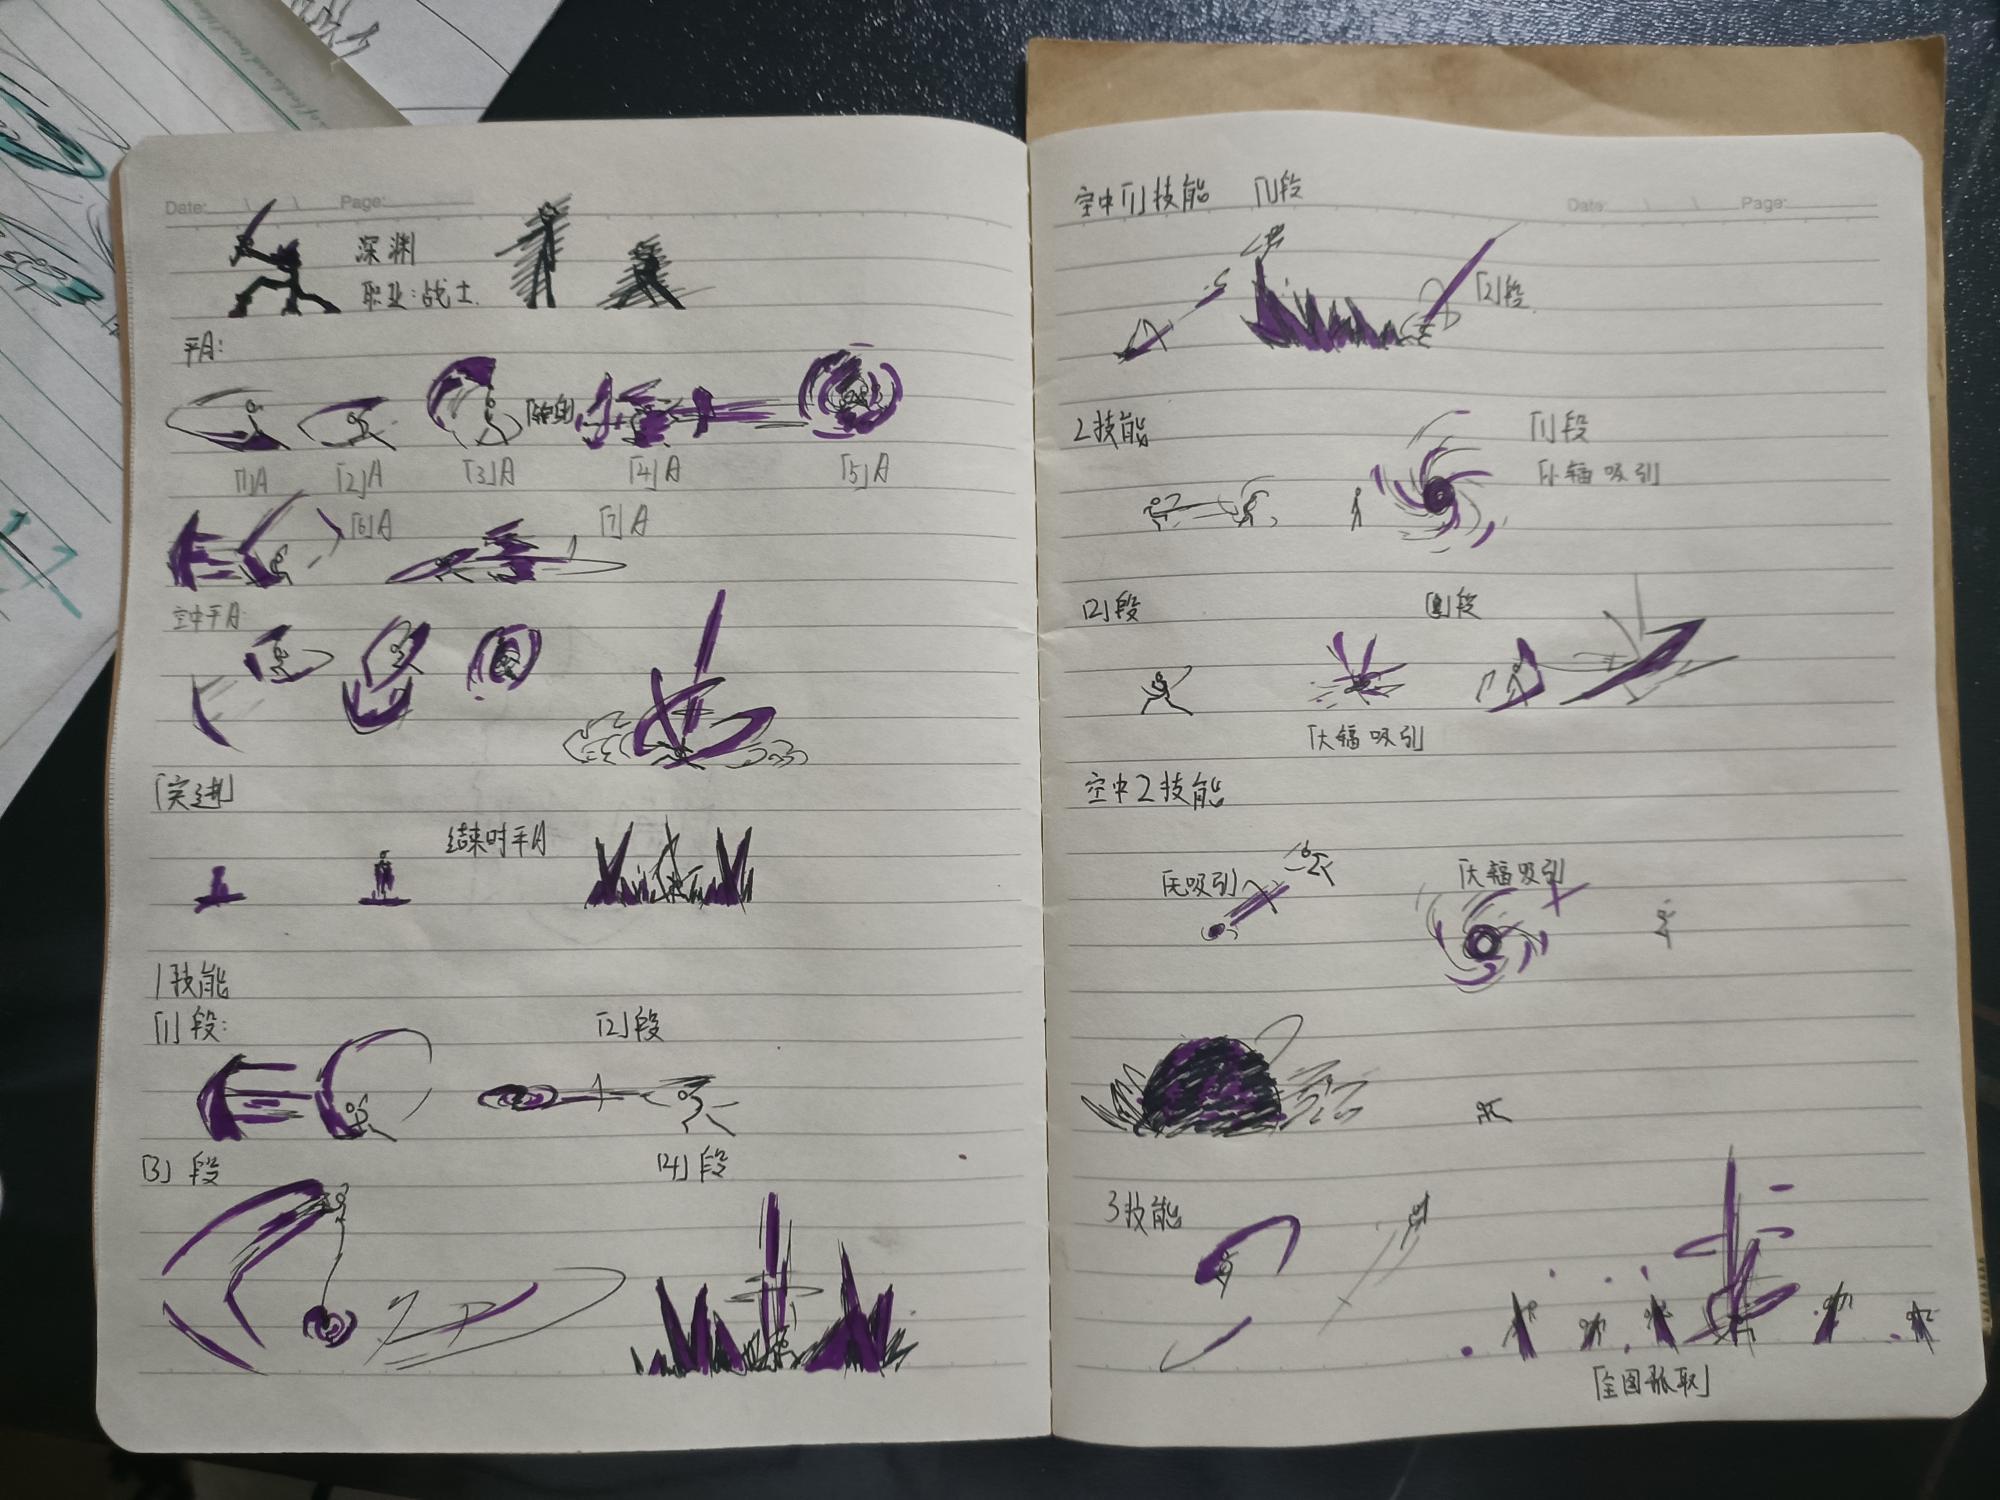 Date: Page:
深渊
职业:战士.
平A:
「1」A 「2」A 「3」A 「4」A 「5」A
「6」A 「7」A
空中平A
「突进」
结束时平A
1技能
「1」段: 「2」段
「3」段 「4」段
空中「1」技能 「1」段
Date: Page:
「2」段
2技能
「1」段
「小辐吸引」
「2」段
段
「大辐吸引」
空中2技能
「无吸引」
「大辐吸引」
3技能
「全图抓取」